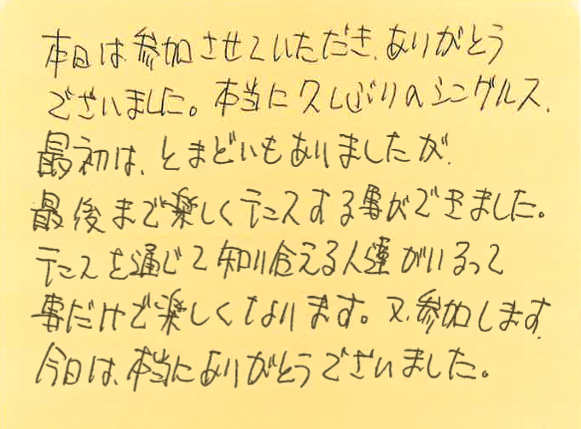 本日は、参加させていただき、ありがとう
ございました。本当に久しぶりのシングルス、
最初は、とまどいもありましたが、
最後まで楽しくテニスする事ができました。
テニスを通じて知り合える人達がいるって
事だけで楽しくなります。又、参加します。
今日は、本当にありがとうございました。